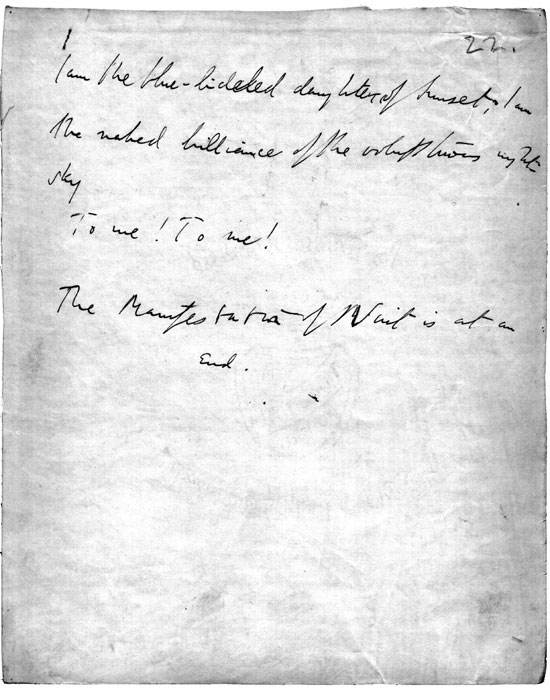 1
22.
I am the blue-lidded daughter of Sunset; I am
the naked brilliance of the voluptuous night-
sky
To me! To me!
The Manifestation of Nuit is at an
end.